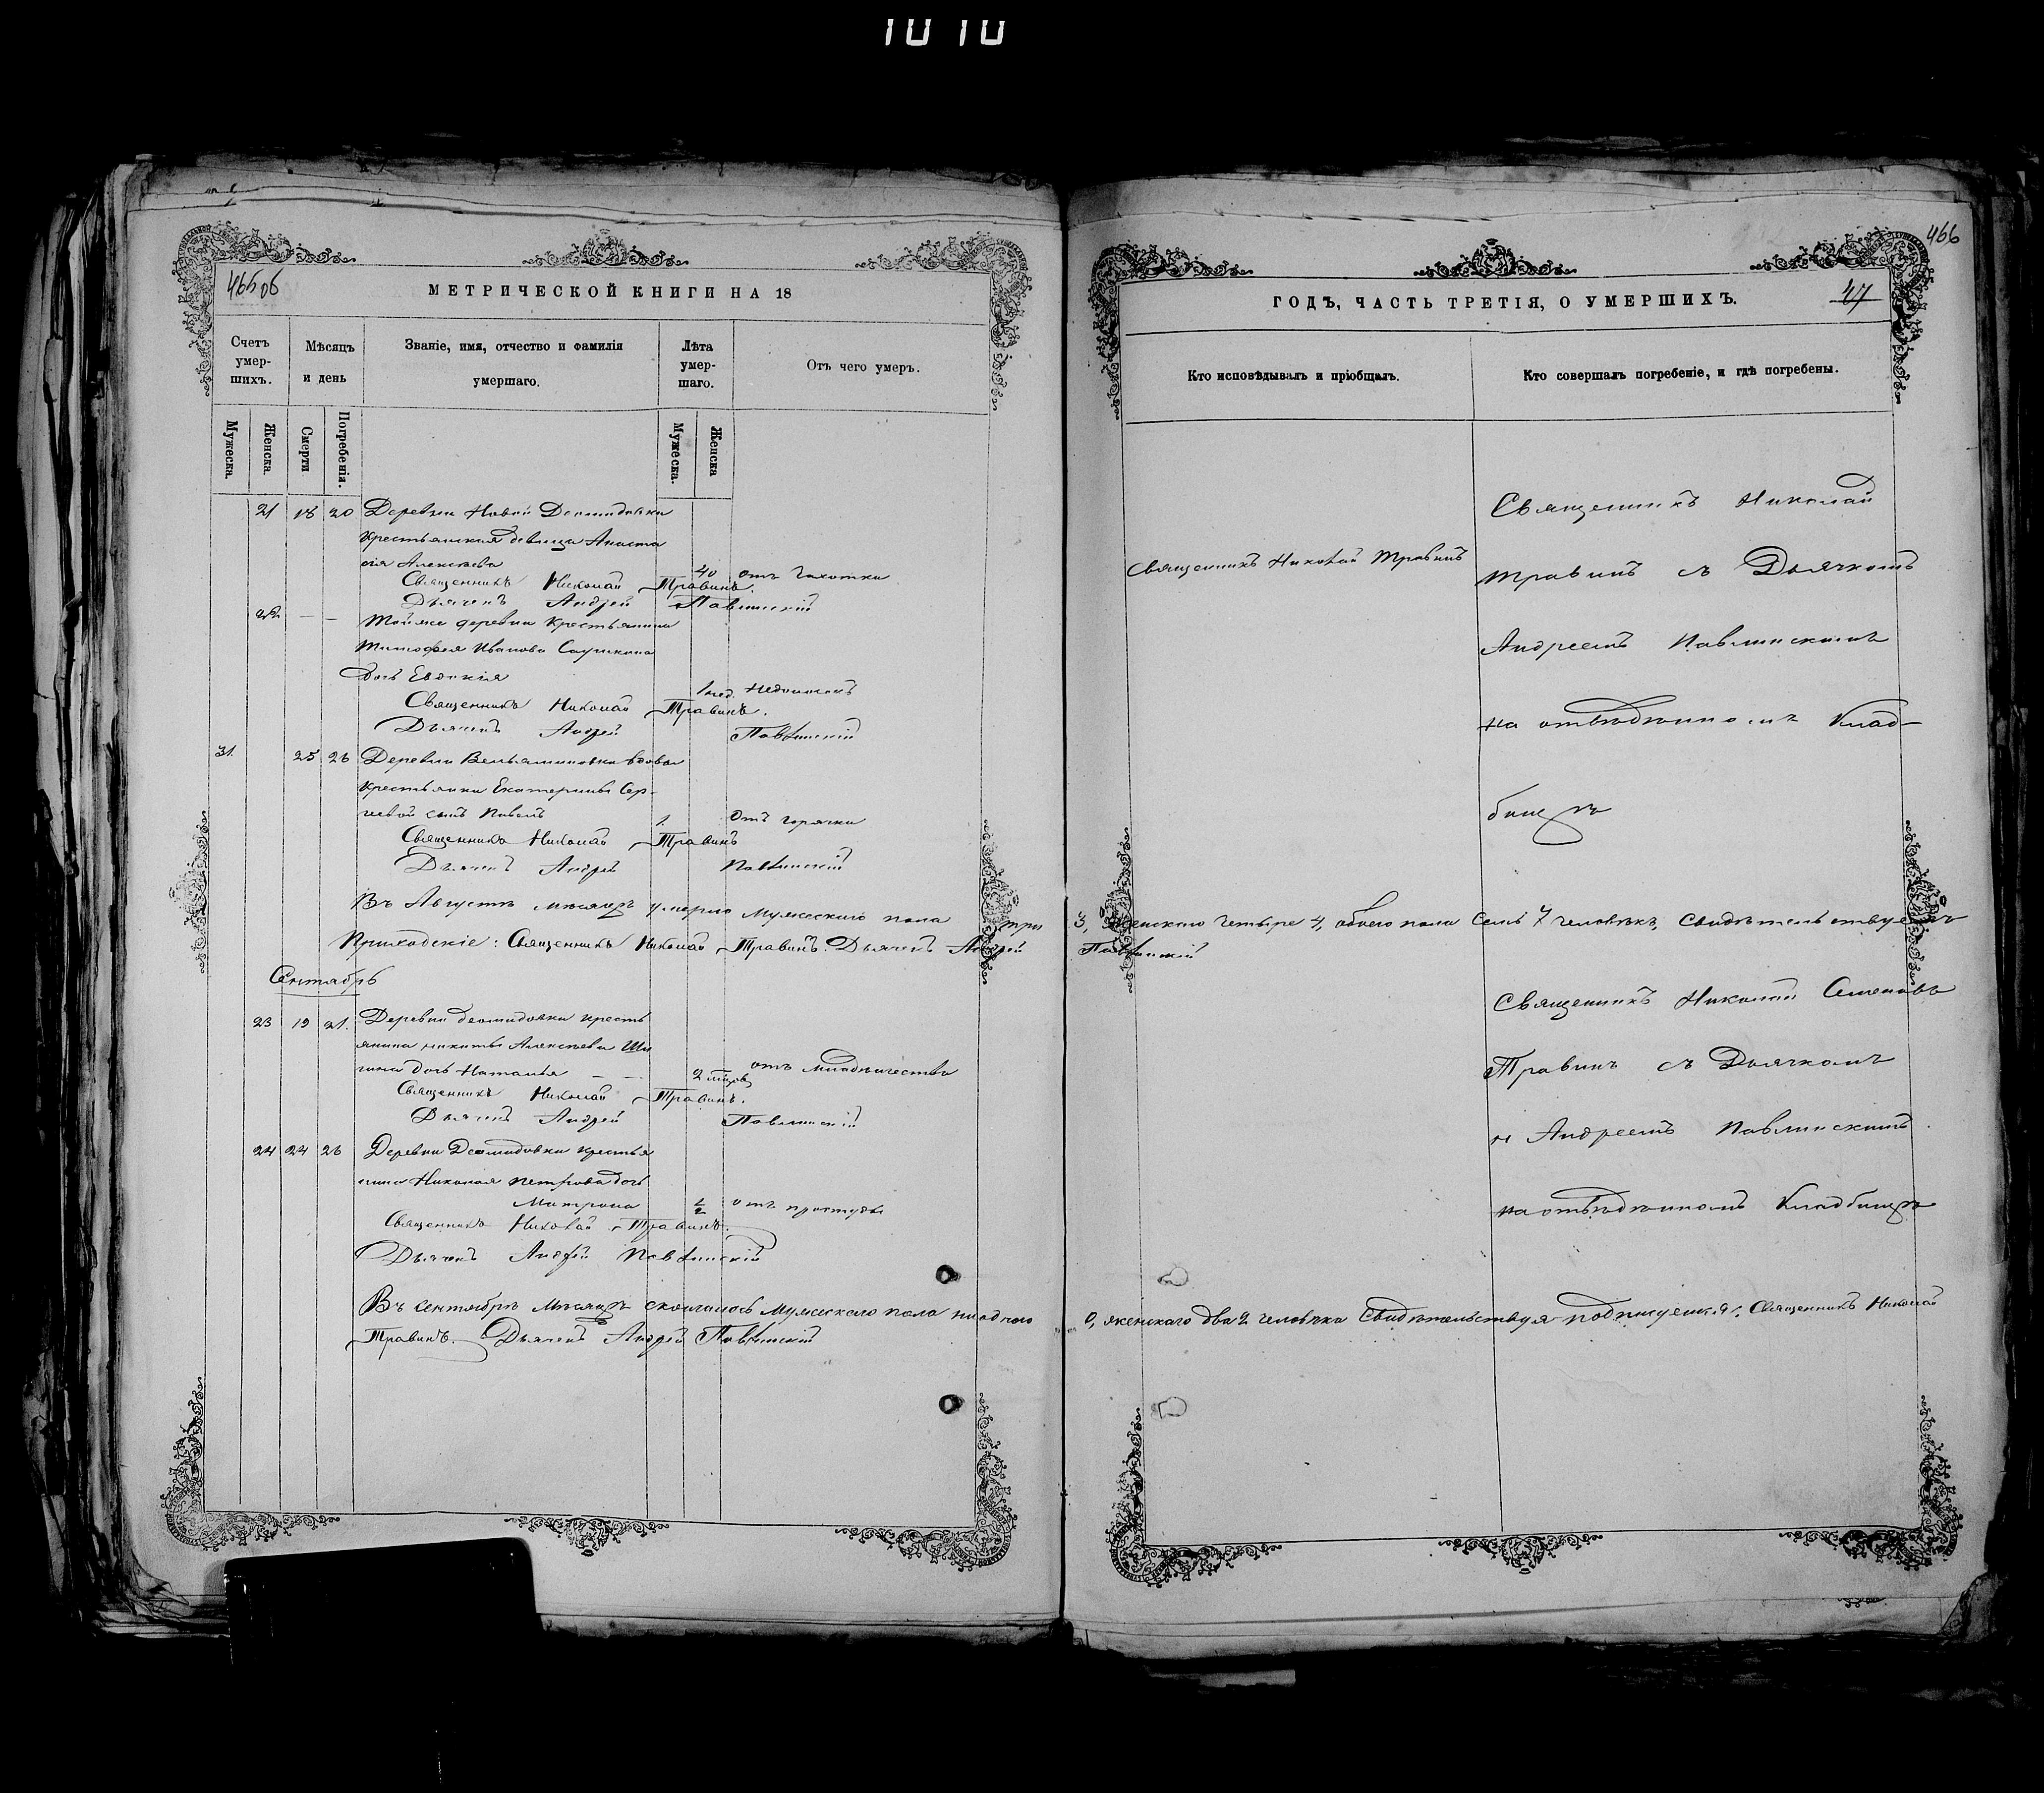 1010
465об
МЕТРИЧЕСКОЙ КНИГИ НА 18
Счетъ умер-шихъ.
Мѣсяцъ и день
Званіе, имя, отчество и фамилія умершаго.
Лѣта умер-шаго.
Отъ чего умеръ.
Мужеска.
Женска.
Смерти
Погребенія.
Мужеска.
Женска
21 18 20 Деревни Новой Деомидовки
крестьянская девица Анаста
сія Алексѣева 40 отъ чахотки
Священникъ Николай Травинъ.
Дьячекъ Андрей Павлинскій
22 — — Той же деревни крестьянина
Тимофея Иванова
дочь Евдокія 1 нед.
Священникъ Николай Травинъ.
Дьячекъ Андрей Павлинскій
31. 25 26 Деревни Вельяминовки вдовы
крестьянки Екатерины Сер-
гѣевой сынъ Павелъ 1. Отъ горячки
Священникъ Николай Травинъ
Дьячекъ Андрей Павлинскій
Въ Августѣ мѣсяцѣ умерло мужескаго пола три
Приходскіе: Священникъ Николай Травинъ. Дьячекъ Андрей
Сентябрь
23 19 21. Деревни Деомидовки кресть
янина Никиты Алексѣева Ши
гина дочь Наталья — — 2 отъ младенчества
Священникъ Николай Травинъ.
Дьячекъ Андрей Павлинскій
24 24 26 Деревни Деомидовки крестья
нина Николая Петрова дочь
Матрона 1/2 отъ простуды
Священникъ Николай Травинъ.
Дьячекъ Андрей Павлинскій
Въ сентябрѣ мѣсяцѣ скончалось мужескаго пола ни одного
Травинъ. Дьячекъ Андрей Павлинскій
466
ГОДЪ, ЧАСТЬ ТРЕТІЯ, О УМЕРШИХЪ.
47
Кто исповѣдывалъ и пріобщалъ.
Кто совершалъ погребеніе, и гдѣ погребены.
Священникъ Николай Травинъ
Священникъ Николай
Травинъ съ Дьячкомъ
Андреемъ Павлинскимъ
на отведенномъ Клад-
бищѣ
3, женскаго четыре 4, обоего пола семь 7 человѣкъ, Свидѣтельствуемъ
Павлинскій
Священникъ Николай Семеновъ
Травинъ съ Дьячкомъ
Андреемъ Павлинскимъ.
на отведенномъ Кладбищѣ
0, женскаго два 2 человѣка Свидѣтельствуя подписуемся: Священникъ Николай